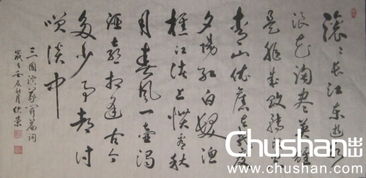 滚〻长江东逝水
浪花淘尽英雄
是非成败转头空
青山依旧在几度
夕阳红白发渔
樵江渚上惯看秋
月春风一壶浊
酒喜相逢古今
多少事都付
笑谈中
三国演义开篇词
Chushan出山
chushan.com